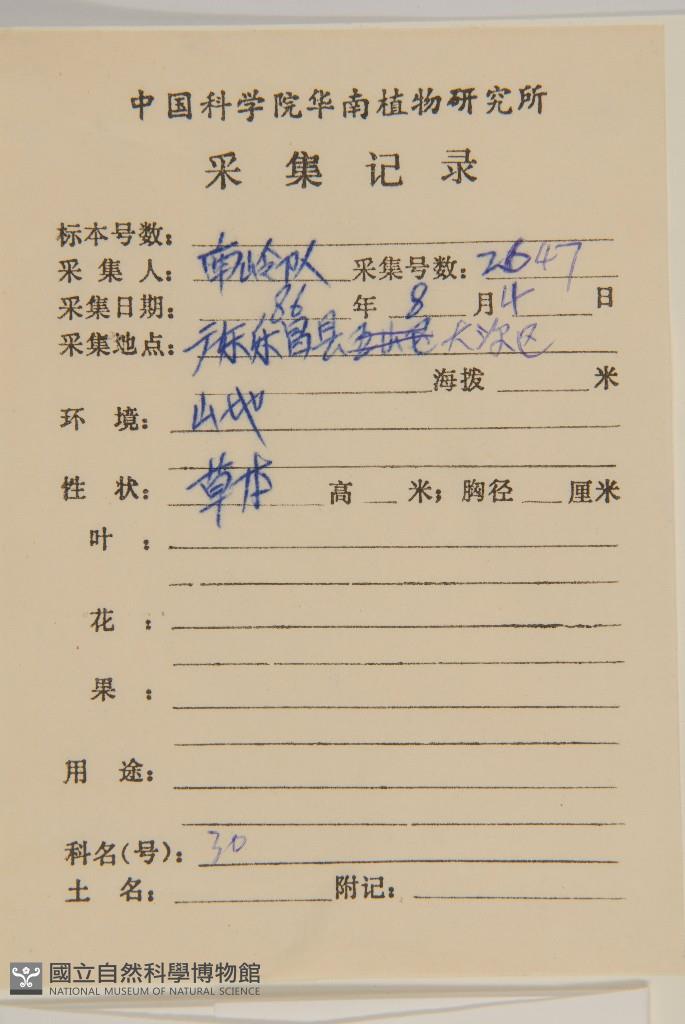 中国科学院华南植物研究所
采集记录
标本号数：
采集人：南岭队 采集号数：2647
采集日期：86年8月4日
采集地点：广东乐昌县五山区大源区
海拨 米
环境：山地
性状：草本 高 米；胸径 厘米
叶：
花：
果：
用途：
科名(号)：30
土名： 附记：
國立自然科學博物館
NATIONAL MUSEUM OF NATURAL SCIENCE